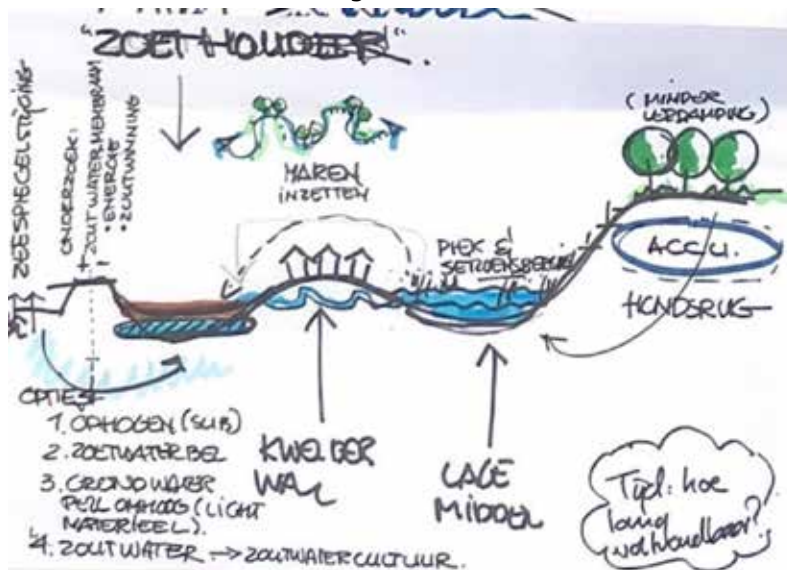 "ZOETHOUDER".
ZEESPIEGELSTIJGING
ONDERZOEK:
ZOUTWATERMEMBRAAM
• ENERGIE
• ZOUTWINNING
+ -
MAREN
INZETTEN
(MINDER
VERDAMPING)
PIEK &
ACCU.
HONDSRUG
OPTIES
1. OPHOGEN (SLIB)
2. ZOETWATERBEL
3. GRONDWATER
PEIL OMHOOG (LICHT
MATERIEEL).
4. ZOUTWATER → ZOUTWATERCULTUUR.
KWELDER
WAL
LAGE
MIDDEL
Tijd: hoe
lang